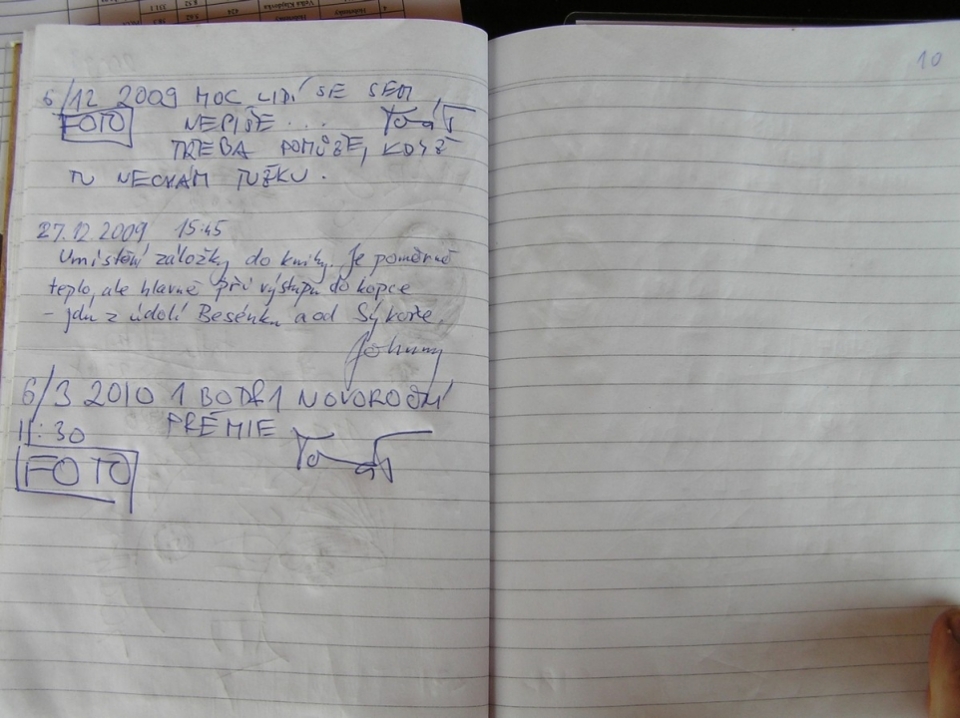 10
6/12 2009 MOC LIDÍ SE SEM
FOTO NEPÍŠE...
TŘEBA POMŮŽE, KDYŽ
TU NECHÁM TUŽKU.
27.12.2009 15:45
Umístění záložky do knihy. Je poměrně
teplo, ale hlavně při výstupu do kopce
- jdu z údolí Besénku a od Sýkoře.
Johnny
6/3 2010 1 BOD A 1 NOVOROČNÍ
11:30 PRÉMIE
FOTO